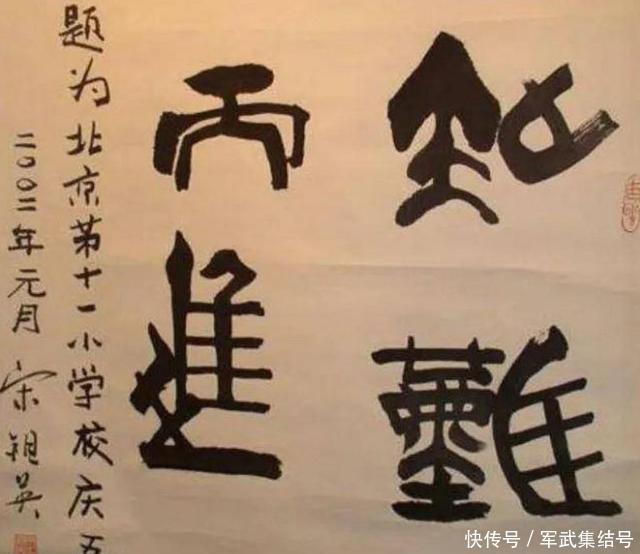 知難
而進
题为北京第十一小学校庆五
二〇〇二年元月 宋祖英
快传号/军武集结号